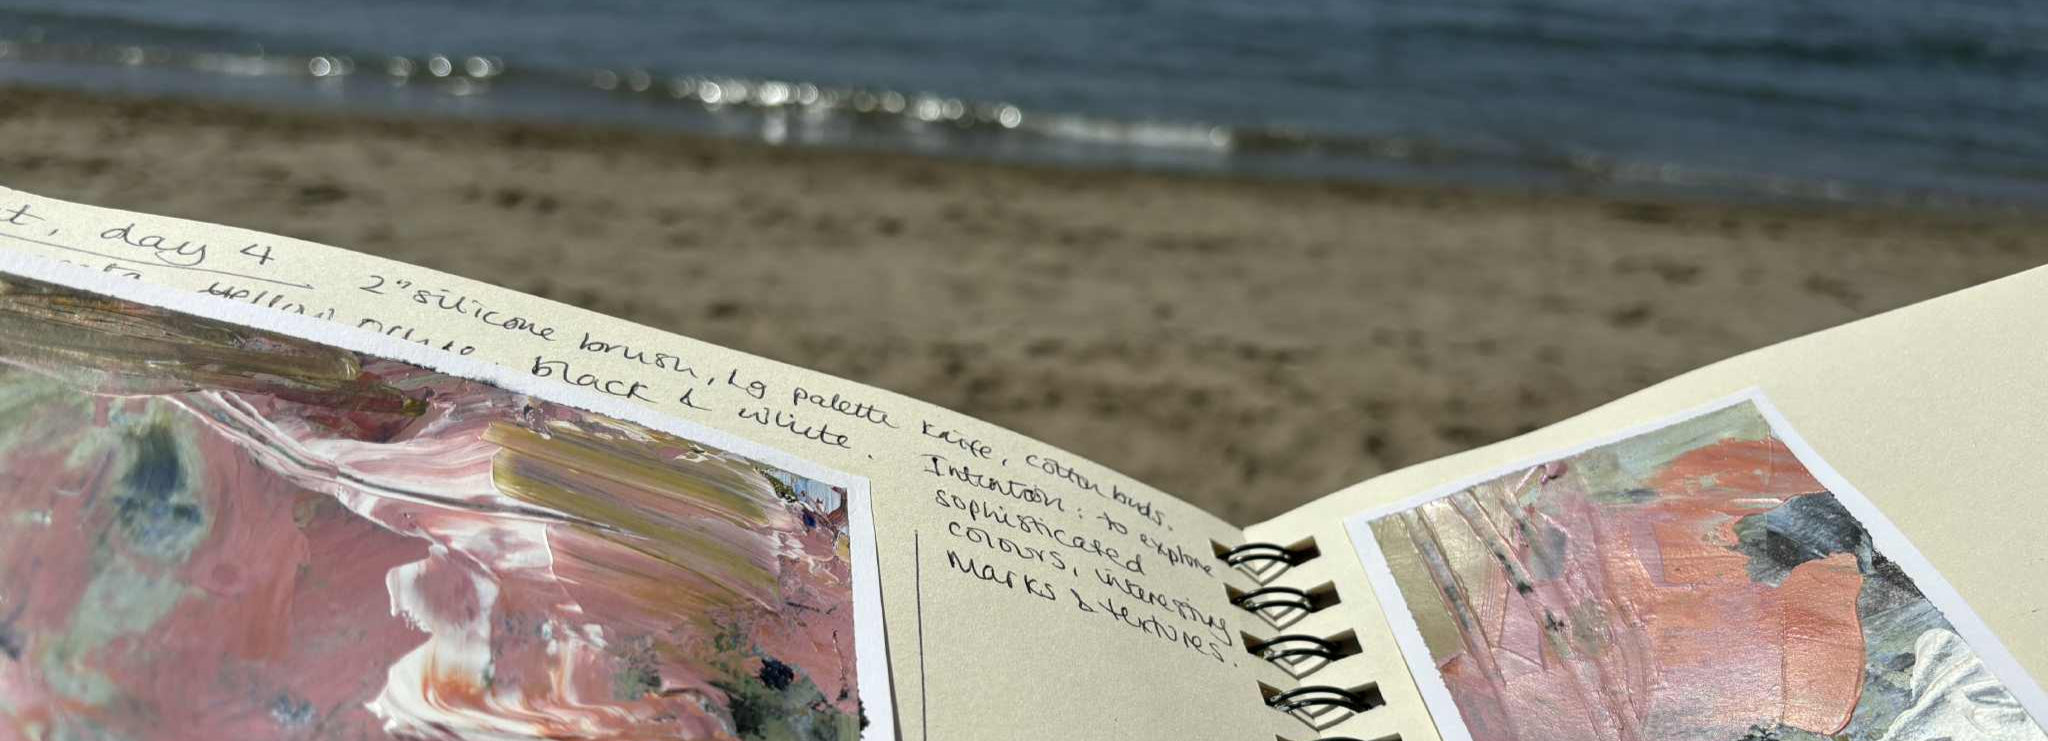 t, day 4
2" silicone brush, Lg palette knife, cotton buds.
yellow ochre, black & white.
Intention: to explore
sophisticated
colours, interesting
marks & textures.